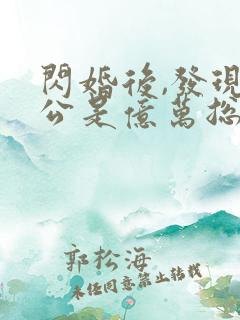 閃婚後,發現
公是億萬
郭松海
未經同意禁止轉載